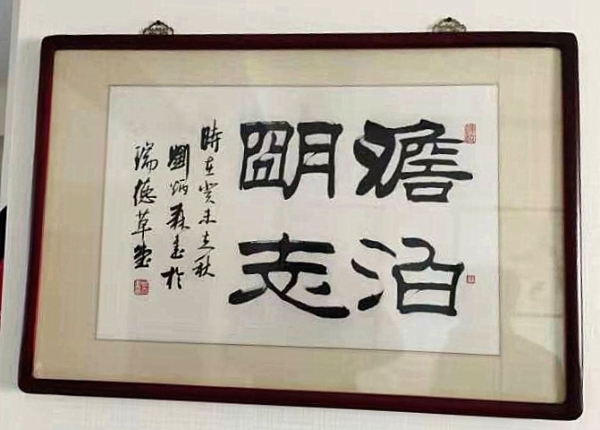 澹泊
朙志
時在癸未立秋
劉炳森書於
瑞德草堂